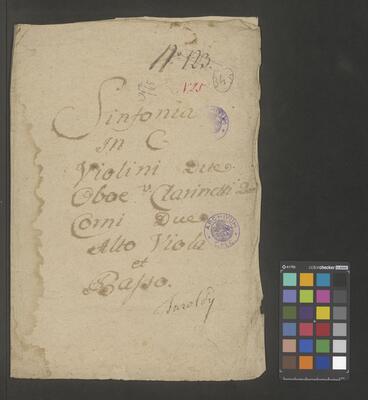 No 123.
No 5
Sinfonia
In C
Violini Due
Oboe v. Clarinetti Due
Corni Due
Alto Viola
et
Basso.
ARCHIVUM
colorchecker CLASSIC